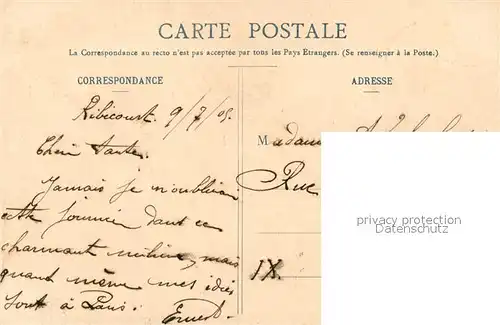 CARTE POSTALE
La Correspondance au recto n'est pas acceptée par tous les Pays Etrangers. (Se renseigner à la Poste.)
CORRESPONDANCE
ADRESSE
Ribécourt. 9/7/05.
Madam
Chère tante.
Rue
Jamais je n'oublierai
cette journée dans ce
charmant milieu, mais
quand même mes idées
sont à Paris.
IX.
Ernest.
privacy protection
Datenschutz